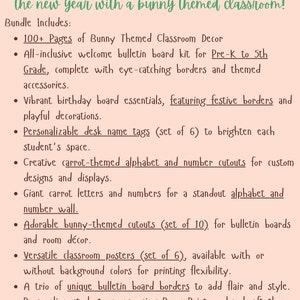 the new year with a bunny themed classroom!
Bundle Includes:
• 100+ Pages of Bunny Themed Classroom Decor
• All-inclusive welcome bulletin board kit for Pre-K to 5th
Grade, complete with eye-catching borders and themed
accessories.
• Vibrant birthday board essentials, featuring festive borders and
playful decorations.
• Personalizable desk name tags (set of 6) to brighten each
student's space.
• Creative carrot-themed alphabet and number cutouts for custom
designs and displays.
• Giant carrot letters and numbers for a standout alphabet and
number wall.
• Adorable bunny-themed cutouts (set of 10) for bulletin boards
and room décor.
• Versatile classroom posters (set of 6), available with or
without background colors for printing flexibility.
• A trio of unique bulletin board borders to add flair and style.